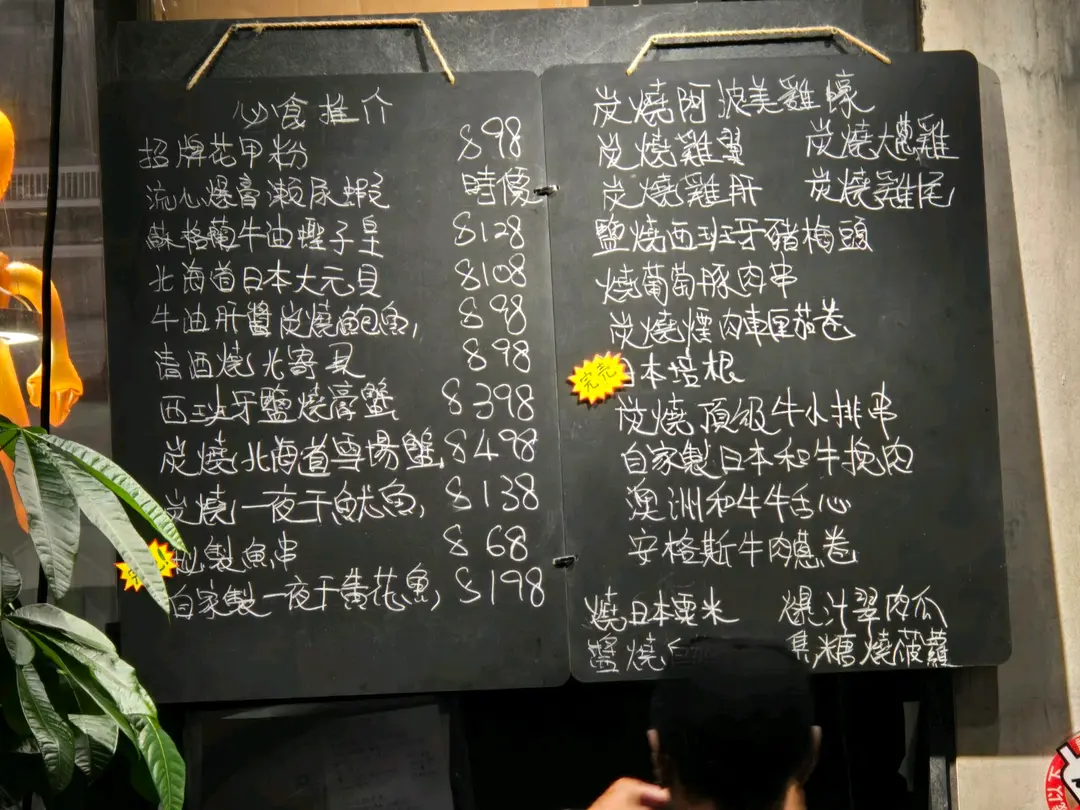 必食推介
招牌花甲粉 $98
流心爆膏瀨尿蝦 時價
蘇格蘭牛油蟶子皇 $128
北海道日本大元貝 $108
牛油肝醬炭燒鮑魚 $98
清酒燒北寄貝 $98
西班牙鹽燒膏蟹 $398
炭燒北海道雪場蟹 $498
炭燒一夜干魷魚 $138
製魚串 $68
自家製一夜干黃花魚 $198
炭燒阿波美雞蠔
炭燒雞翼 炭燒大蔥雞
炭燒雞肝 炭燒雞尾
鹽燒西班牙豬梅頭
燒葡萄豚肉串
炭燒煙肉車厘茄卷
完売
日本培根
炭燒頂級牛小排串
自家製日本和牛挽肉
澳洲和牛牛舌心
安格斯牛肉蔥卷
燒日本粟米 爆汁翠肉瓜
鹽燒 糖燒菠蘿
以下